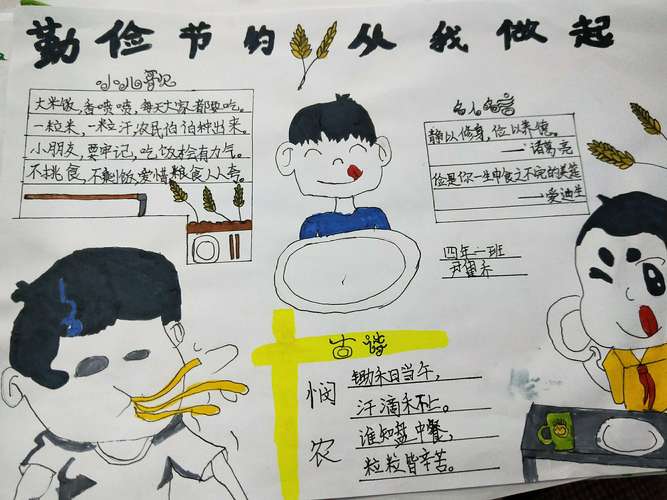 勤俭节约 从我做起
小儿哥见
大米饭,香喷喷,每天大家都要吃。
一粒米,一粒汗,农民伯伯种出来。
小朋友,要牢记,吃饭才会有力气。
不挑食,不剩饭,爱惜粮食人人夸。
名人名言
静以修身,俭以养德。
——诸葛亮
俭是你一生中食之不完的美筵
——爱迪生
四年一班
尹
古诗
悯农
锄禾日当午,
汗滴禾下土。
谁知盘中餐,
粒粒皆辛苦。